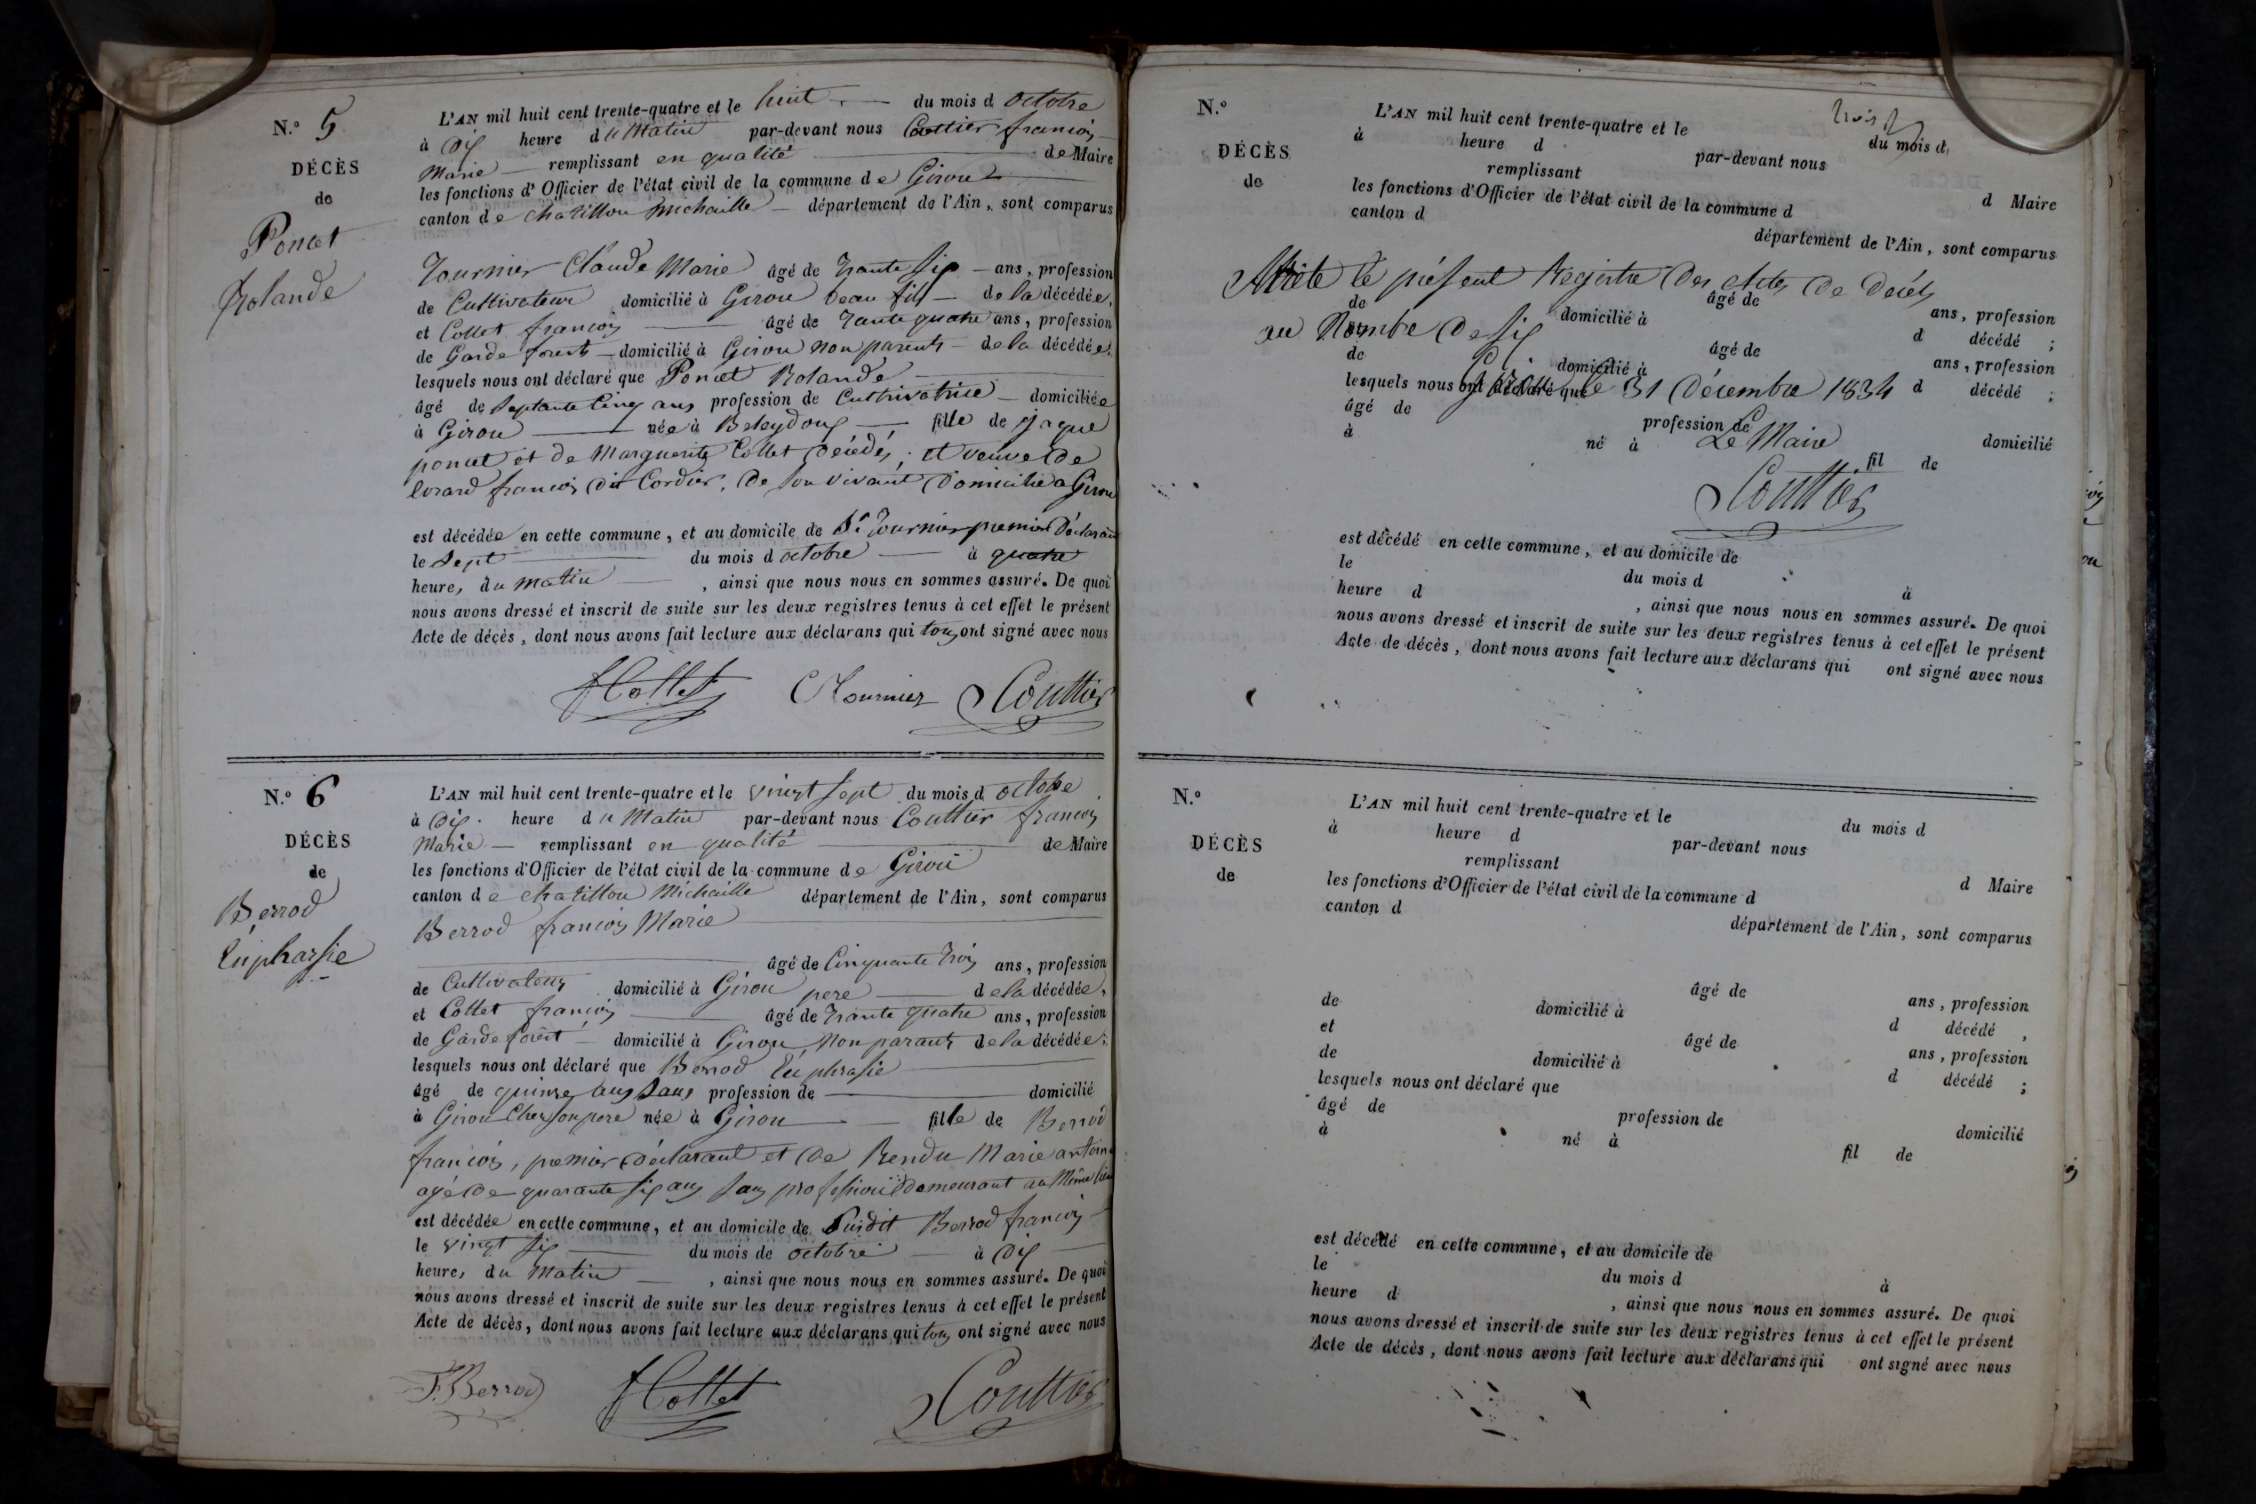 N.° 5
DÉCÈS
de
Poncet
Rolande
L'AN mil huit cent trente-quatre et le huit du mois d octobre
à Dix heure du Matin par-devant nous Couttier françois
Marie remplissant en qualité de Maire
les fonctions d'Officier de l'état civil de la commune de Giron
canton de chatillon Michaille département de l'Ain, sont comparus
Tournier Claude Marie âgé de trante six ans, profession
de Cultivateur domicilié à Giron beau fils de la décédée,
et Collet françois âgé de trante quatre ans, profession
de Garde forets domicilié à Giron non parents de la décédée;
lesquels nous ont déclaré que Poncet Rolande
âgé de Septante Cinq ans profession de Cultivatrice domiciliée
à Giron née à Beleydoux fille de jaque
poncet et de Marguerite Collet décédés; et veuve de
Evrard françois dit Cordier, de son vivant Domicilié a Giron
est décédée en cette commune, et au domicile de Sr Tournier premier Déclarant
le Sept du mois d octobre à quatre
heures du matin, ainsi que nous nous en sommes assuré. De quoi
nous avons dressé et inscrit de suite sur les deux registres tenus à cet effet le présent
Acte de décès, dont nous avons fait lecture aux déclarans qui tous ont signé avec nous
f Collet Tournier Couttier
N.° 6
DÉCÈS
de
Berrod
Euphrasie
L'AN mil huit cent trente-quatre et le vingt sept du mois d octobre
à Dix heure du Matin par-devant nous Couttier françois
Marie remplissant en qualité de Maire
les fonctions d'Officier de l'état civil de la commune de Giron
canton de chatillon Michaille département de l'Ain, sont comparus
Berrod françois Marie
âgé de Cinquante trois ans, profession
de Cultivateur domicilié à Giron pere de la décédée,
et Collet françois âgé de trante quatre ans, profession
de Garde forêt domicilié à Giron Non parants de la décédée;
lesquels nous ont déclaré que Berrod Euphrasie
âgé de quinze ans Sans profession de domicilié
à Giron Chez son pere née à Giron fille de Berrod
françois, premier déclarant et de Rendu Marie antoin
agé de quarante six ans sans profession demeurant au Même lieu
est décédée en cette commune, et au domicile de Susdit Berrod françois
le vingt six du mois de octobre à Dix
heures du Matin, ainsi que nous nous en sommes assuré. De quoi
nous avons dressé et inscrit de suite sur les deux registres tenus à cet effet le présent
Acte de décès, dont nous avons fait lecture aux déclarans qui tous ont signé avec nous
F. Berrod f Collet Couttier
N.°
DÉCÈS
de
trois
L'AN mil huit cent trente-quatre et le du mois d
à heure d par-devant nous
remplissant d Maire
les fonctions d'Officier de l'état civil de la commune d
canton d département de l'Ain, sont comparus
Arrêté le présent Registre Des Actes de Décés
de âgé de ans, profession
au Nombre De six
domicilié à d décédé;
et âgé de ans, profession
de domicilié à d décédé;
lesquels nous ont déclaré que
Giron le 31 Décembre 1834
âgé de profession de domicilié
Le Maire
à né à fil de
Couttier
est décédé en cette commune, et au domicile de
le du mois d à
heure d, ainsi que nous nous en sommes assuré. De quoi
nous avons dressé et inscrit de suite sur les deux registres tenus à cet effet le présent
Acte de décès, dont nous avons fait lecture aux déclarans qui ont signé avec nous
N.°
DÉCÈS
de
L'AN mil huit cent trente-quatre et le du mois d
à heure d par-devant nous
remplissant d Maire
les fonctions d'Officier de l'état civil de la commune d
canton d département de l'Ain, sont comparus
âgé de ans, profession
de domicilié à d décédé,
et âgé de ans, profession
de domicilié à d décédé;
lesquels nous ont déclaré que
âgé de profession de domicilié
à né à fil de
est décédé en cette commune, et au domicile de
le du mois d à
heure d, ainsi que nous nous en sommes assuré. De quoi
nous avons dressé et inscrit de suite sur les deux registres tenus à cet effet le présent
Acte de décès, dont nous avons fait lecture aux déclarans qui ont signé avec nous